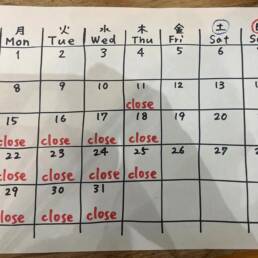 月 火 水 木 金 土 日
Mon Tue Wed Thu Fri Sat
1 2 3 4 5 6
8 9 10 11 12 13
close
15 16 17 18 19 20
close close close close
22 23 24 25 26 27
close close close close
29 30 31
close close close